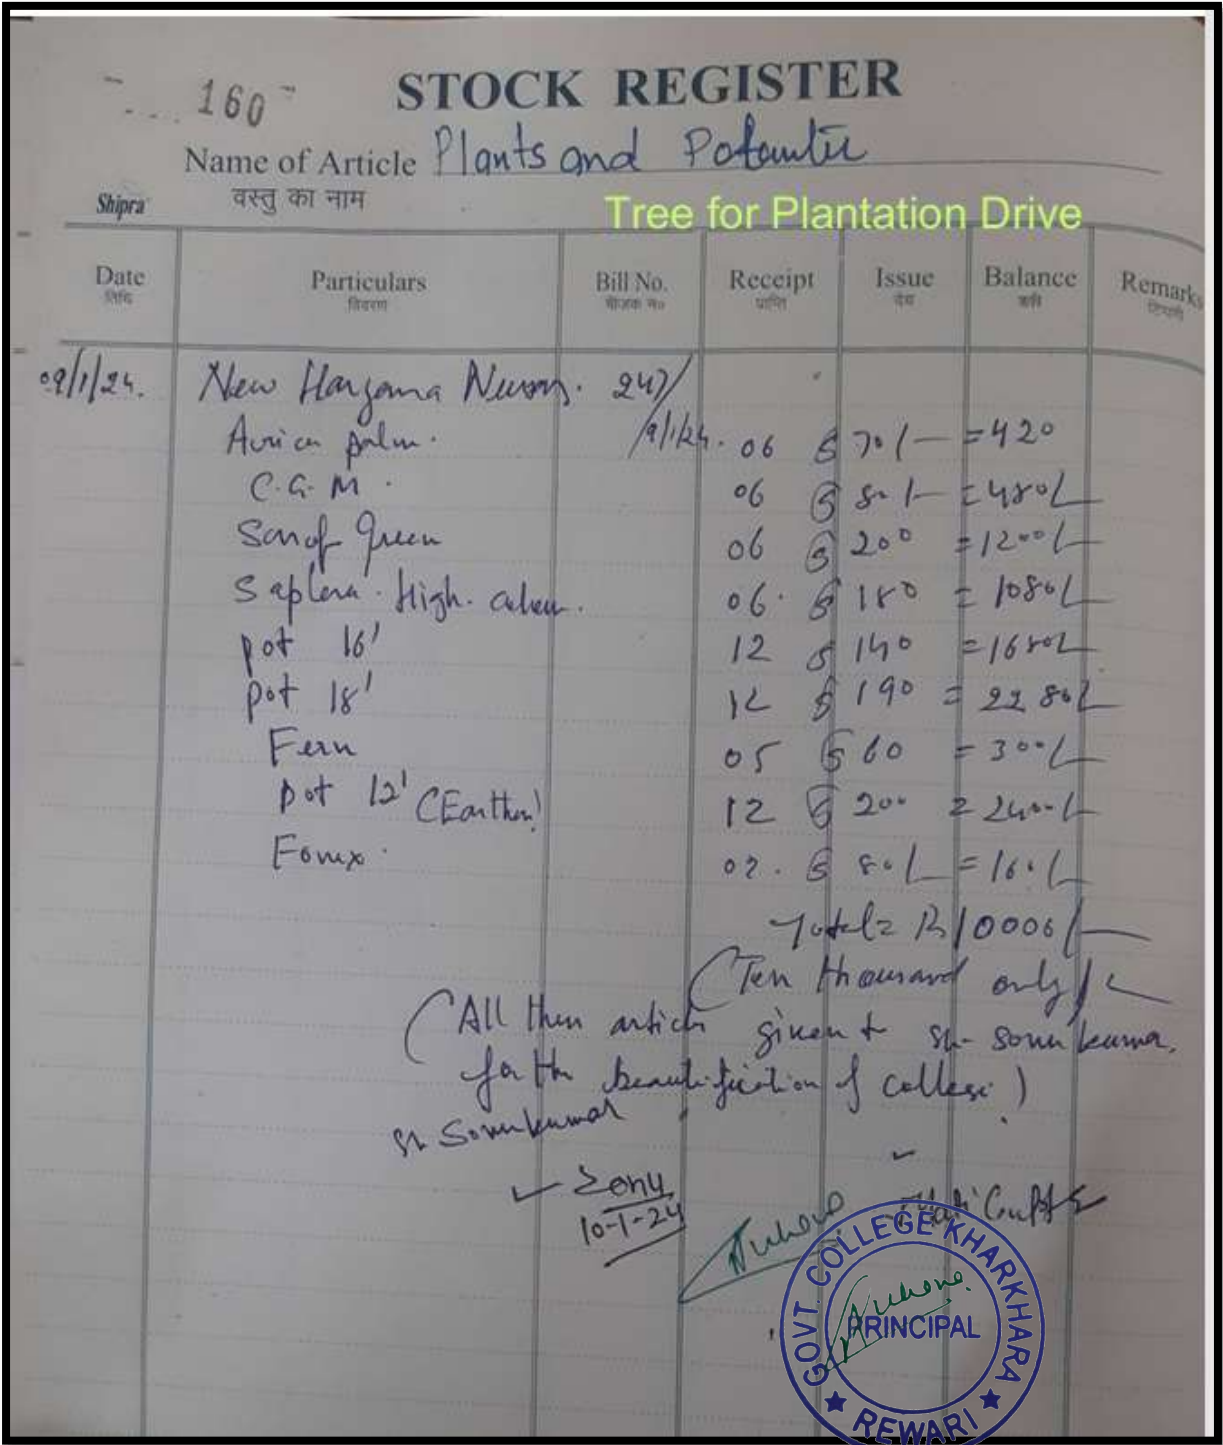 160
STOCK REGISTER
Name of Article Plants and
वस्तु का नाम
Shipra
Tree for Plantation Drive
Date Particulars Bill No. Receipt Issue Balance Remarks
तिथि विवरण बीजक न० प्राप्ति देय बाकी टिप्पणी
09/1/24. New Haryana 247/
palm. /9/1/24. 06 @ 70/- =420
C.G.M. 06 @ 80/- =480/-
Green 06 @ 200 =1200/-
High. 06. @ 180 = 1080/-
pot 16' 12 @ 140 =1680/-
pot 18' 12 @ 190 = 2280/-
Fern 05 @ 60 = 300/-
pot 12' (Earthen) 12 @ 200 = 2400/-
02. @ 80/- =160/-
Total= Rs 10000/-
(Ten thousand only)/-
(All then article given to sh- sonu kumar.
for the beautification of college.)
Sh Sonu kumar
Sonu
10-1-24
GOVT. COLLEGE KHARKHARA
PRINCIPAL
★ REWARI ★